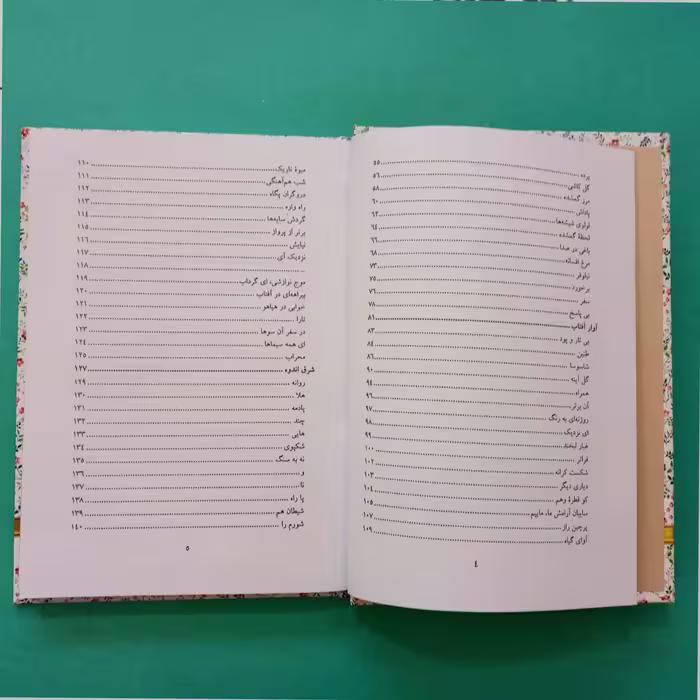 پرده ۵۵
گل کاشی ۵۶
مرز گمشده ۵۸
پاداش ۶۰
لولوی شیشه‌ها ۶۲
لحظهٔ گمشده ۶۴
باغی در صدا ۶۶
مرغ افسانه ۶۸
نیلوفر ۷۳
برخورد ۷۵
سفر ۷۶
بی پاسخ ۷۸
آوار آفتاب ۸۱
بی تار و پود ۸۳
طنین ۸۴
شاسوسا ۸۶
گل آینه ۹۰
همراه ۹۴
آن برتر ۹۶
روزنه‌ای به رنگ ۹۷
ای نزدیک ۹۸
غبار لبخند ۹۹
فراتر ۱۰۰
شکست کرانه ۱۰۲
دیاری دیگر ۱۰۳
کو قطرهٔ وهم ۱۰۴
سایبان آرامش ما، ماییم ۱۰۵
پرچین راز ۱۰۷
آوای گیاه ۱۰۹
۴
میوهٔ تاریک ۱۱۰
شب هم‌آهنگی ۱۱۱
دروگران پگاه ۱۱۲
راه واره ۱۱۳
گردش سایه‌ها ۱۱۴
برتر از پرواز ۱۱۵
نیایش ۱۱۶
نزدیک آی ۱۱۷
... ۱۱۸
موج نوازشی، ای گرداب ۱۱۹
بیراهه‌ای در آفتاب ۱۲۰
خوابی در هیاهو ۱۲۱
تارا ۱۲۲
در سفر آن سوها ۱۲۳
ای همه سیماها ۱۲۴
محراب ۱۲۵
شرق اندوه ۱۲۷
روانه ۱۲۹
هلا ۱۳۰
پادمه ۱۳۱
چند ۱۳۲
هایی ۱۳۳
شکپوی ۱۳۴
نه به سنگ ۱۳۵
و ۱۳۶
نا ۱۳۷
پا راه ۱۳۸
شیطان هم ۱۳۹
شورم را ۱۴۰
۵